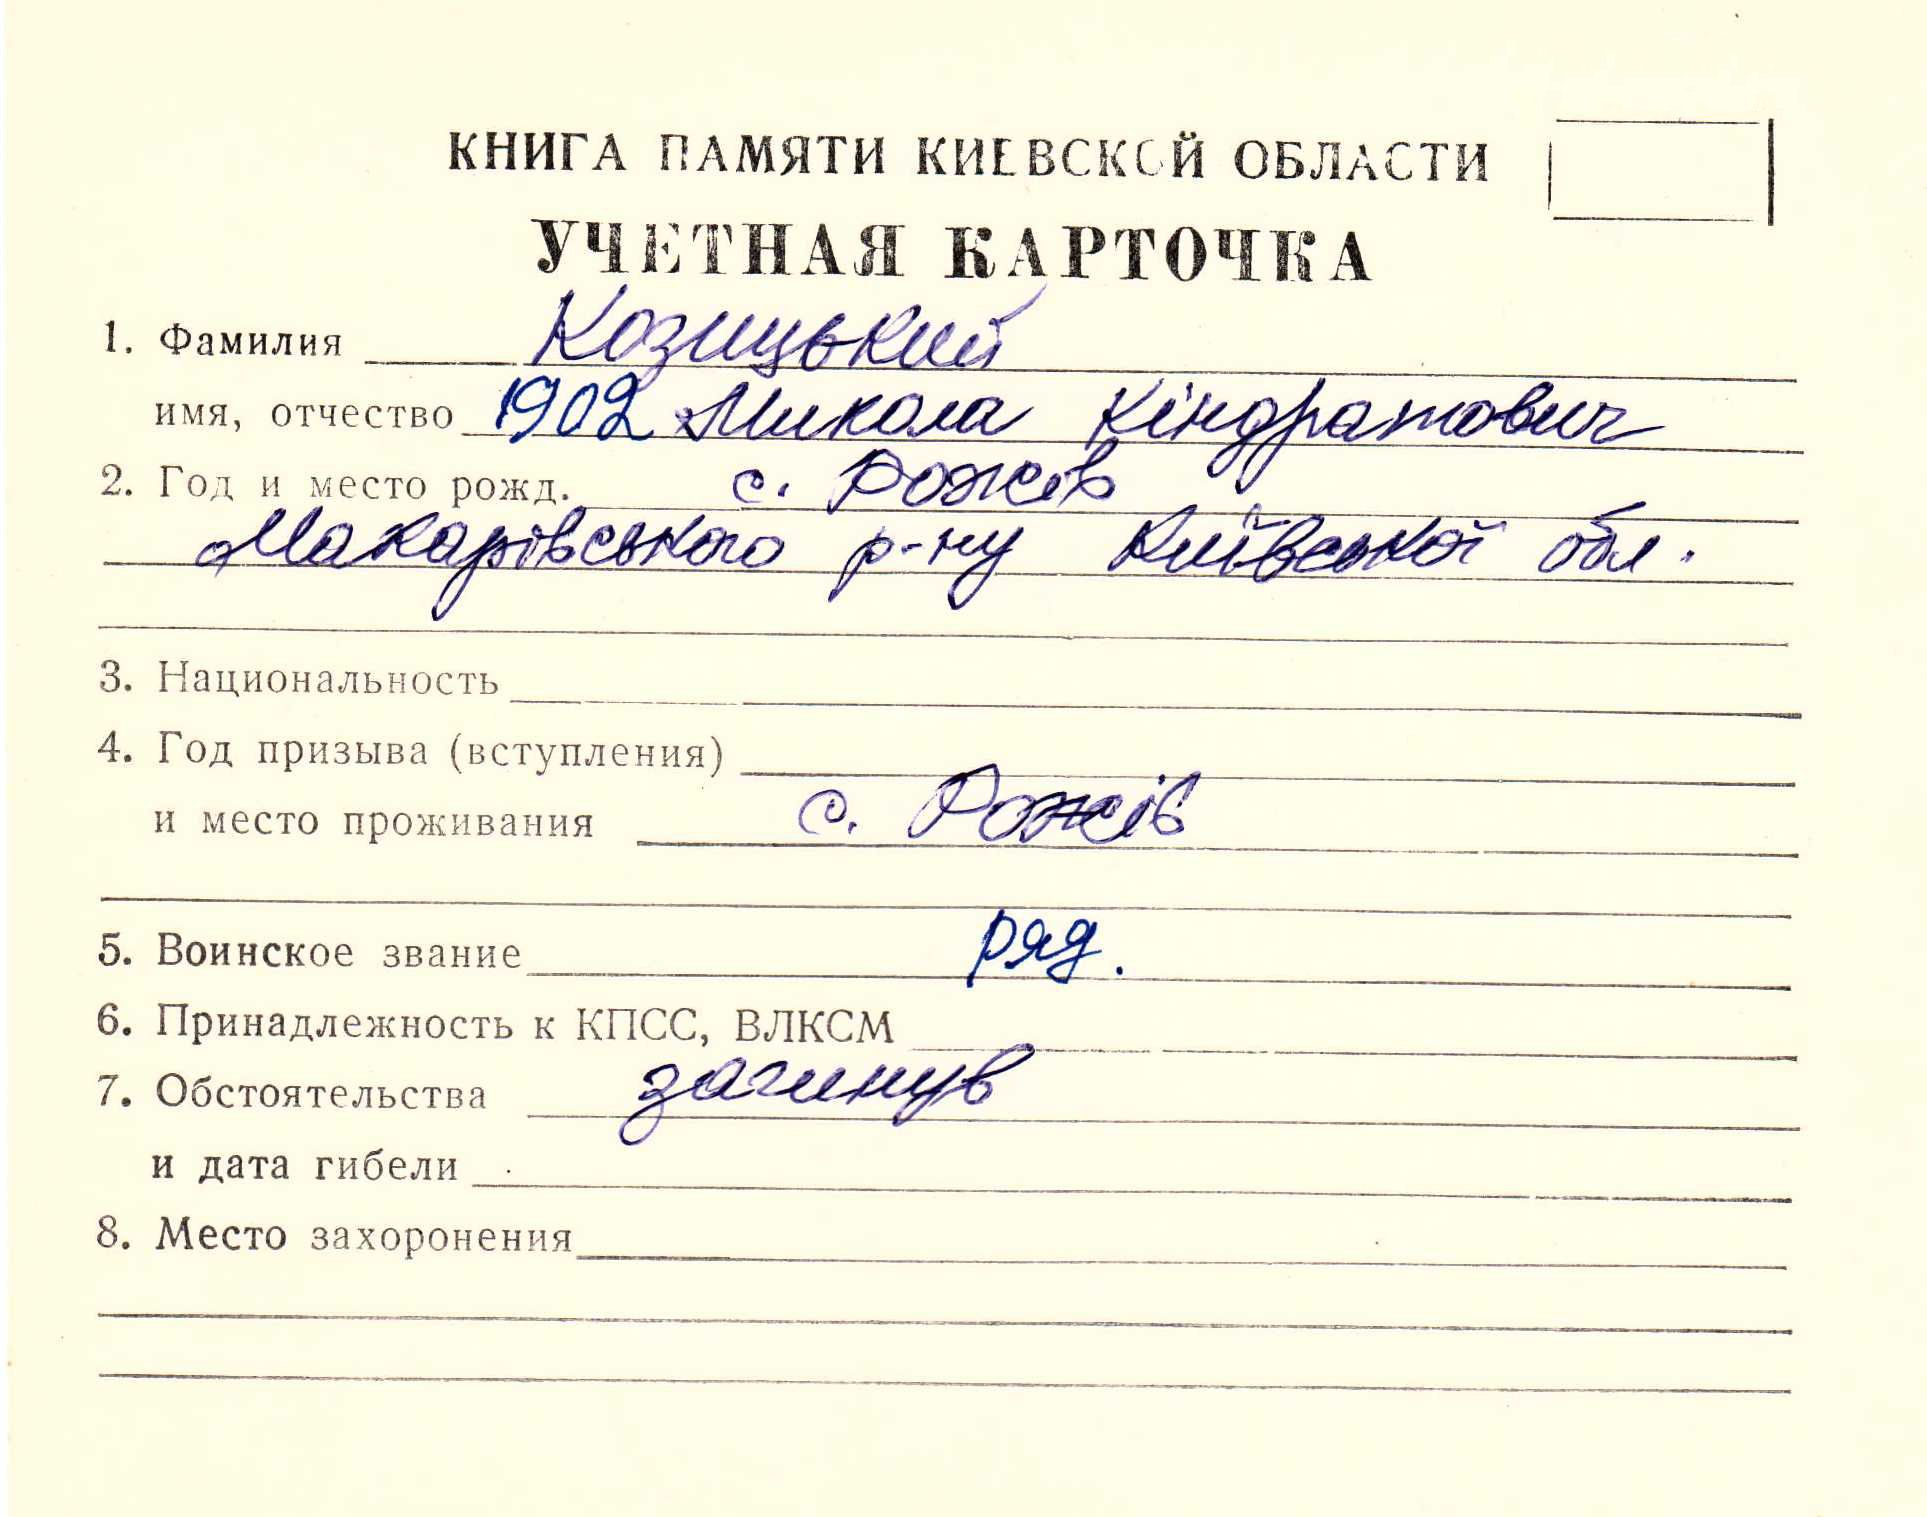 КНИГА ПАМЯТИ КИЕВСКОЙ ОБЛАСТИ
УЧЕТНАЯ КАРТОЧКА
1. Фамилия Козицький
имя, отчество 1902 Микола Кіндратович
2. Год и место рожд. с. Рожів
Макарівського р-ну Київської обл.
3. Национальность
4. Год призыва (вступления)
и место проживания с. Рожів
5. Воинское звание ряд.
6. Принадлежность к КПСС, ВЛКСМ
7. Обстоятельства загинув
и дата гибели
8. Место захоронения